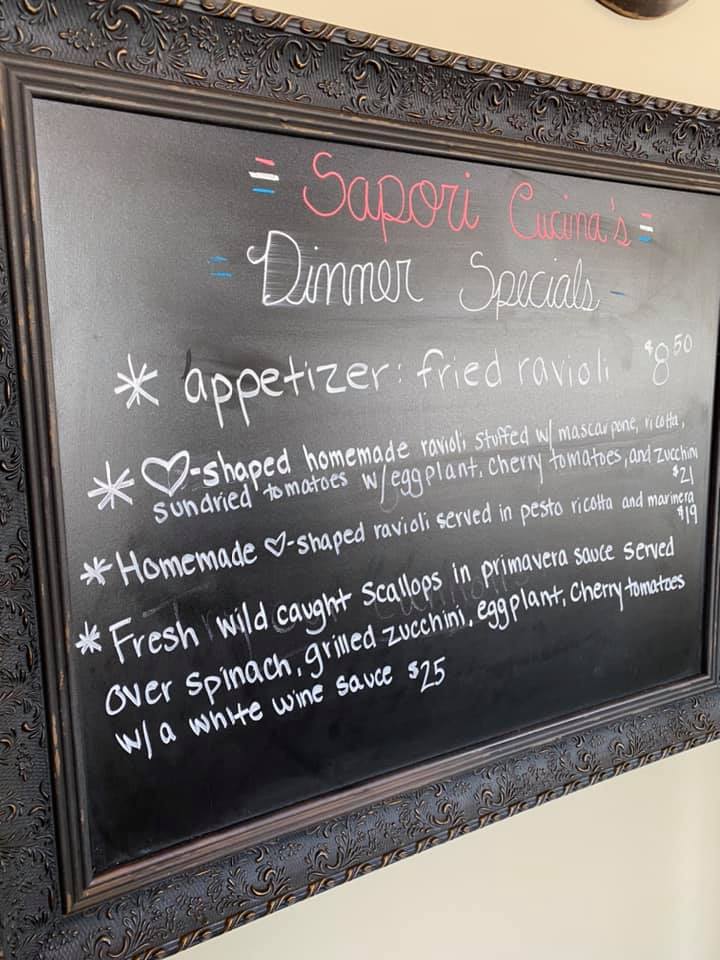 Sapori Cucina's
Dinner Specials
* appetizer: fried ravioli $8.50
* ♡-shaped homemade ravioli stuffed w/ mascarpone, ricotta,
sundried tomatoes w/eggplant, cherry tomatoes, and zucchini
$21
* Homemade ♡-shaped ravioli served in pesto ricotta and marinera
$19
* Fresh wild caught scallops in primavera sauce served
over spinach, grilled zucchini, eggplant, cherry tomatoes
w/ a white wine sauce $25